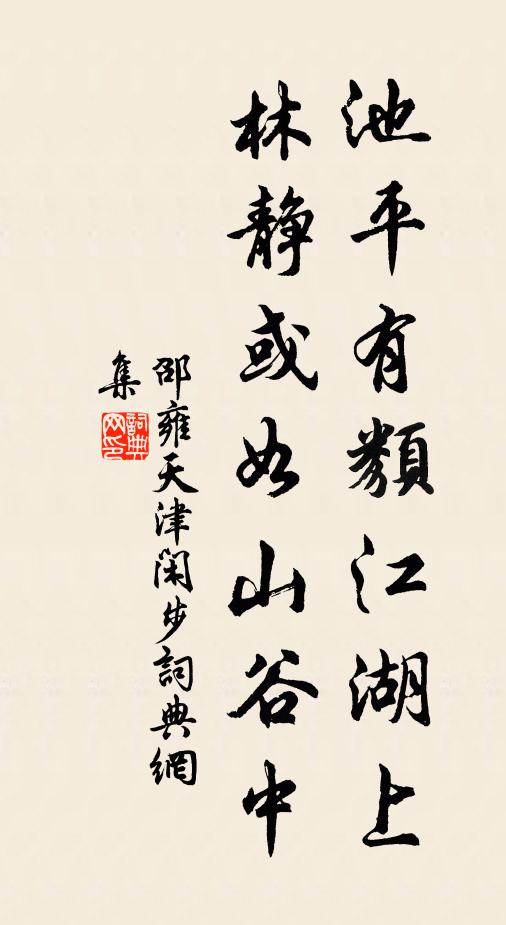 池平有類江湖上
林静或如山谷中
邵雍天津閑步詞典網
集
詞典网印